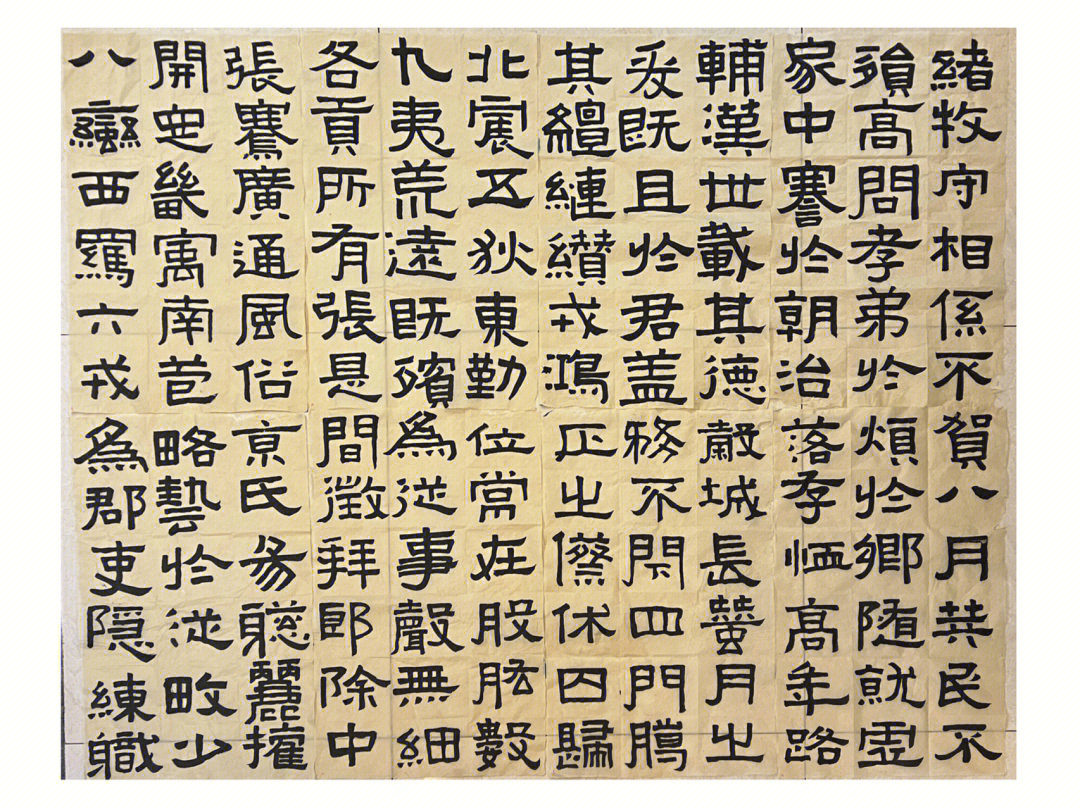 緒牧守相係不賀八月共民不
殞高問孝弟於煩於鄉隨就虛
家中謇於朝治落孝恤高年路
輔漢世載其德穀城長蠶月之
爰既且於君盖務不閉四門騰
其纏縺纘戎鴻正之僚休囚歸
北震五狄東勤位常在股肱數
九夷荒遠既殯為從事聲無細
各貢所有張是間徵拜郎除中
張騫廣通風俗京氏易聰麗權
開定畿寓南苞略藝於從畋少
八蠻西羈六戎為郡吏隱練職